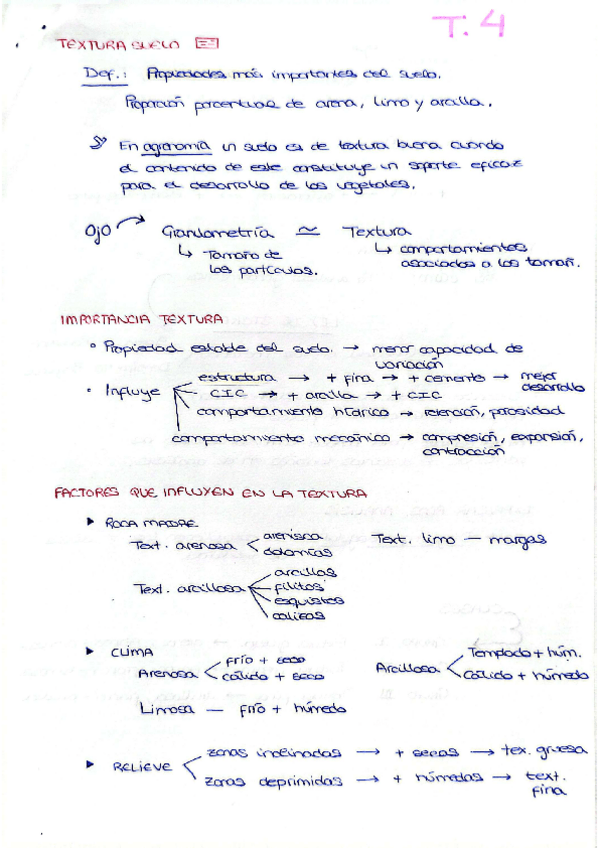 T. 4
TEXTURA SUELO
Def.: Propiedades más importantes del suelo.
Proporción porcentual de arena, limo y arcilla.
En agronomía un suelo es de textura buena cuando
el contenido de este constituye un soporte eficaz
para el desarrollo de los vegetales.
Ojo → Granulometría ≃ Textura
↳ Tamaño de ↳ comportamientos
las partículas. asociados a los tamañ.
IMPORTANCIA TEXTURA
• Propiedad estable del suelo. → menor capacidad de
variación
• Influye estructura → + fina → + cemento → mejor
desarrollo
CIC → + arcilla → + CIC
comportamiento hídrico → retención, porosidad
comportamiento mecánico → compresión, expansión,
contracción
FACTORES QUE INFLUYEN EN LA TEXTURA
▸ ROCA MADRE
Text. arenosa < arenisca Text. limo — margas
dolomías
Text. arcillosa arcillas
filitos
esquistos
calizas
▸ CLIMA
Arenosa < frío + seco Arcillosa < Templado + húm.
cálido + seco Cálido + húmedo
Limosa — frío + húmedo
▸ RELIEVE < zonas inclinadas → + secas → tex. gruesa
zonas deprimidas → + húmedas → text.
fina